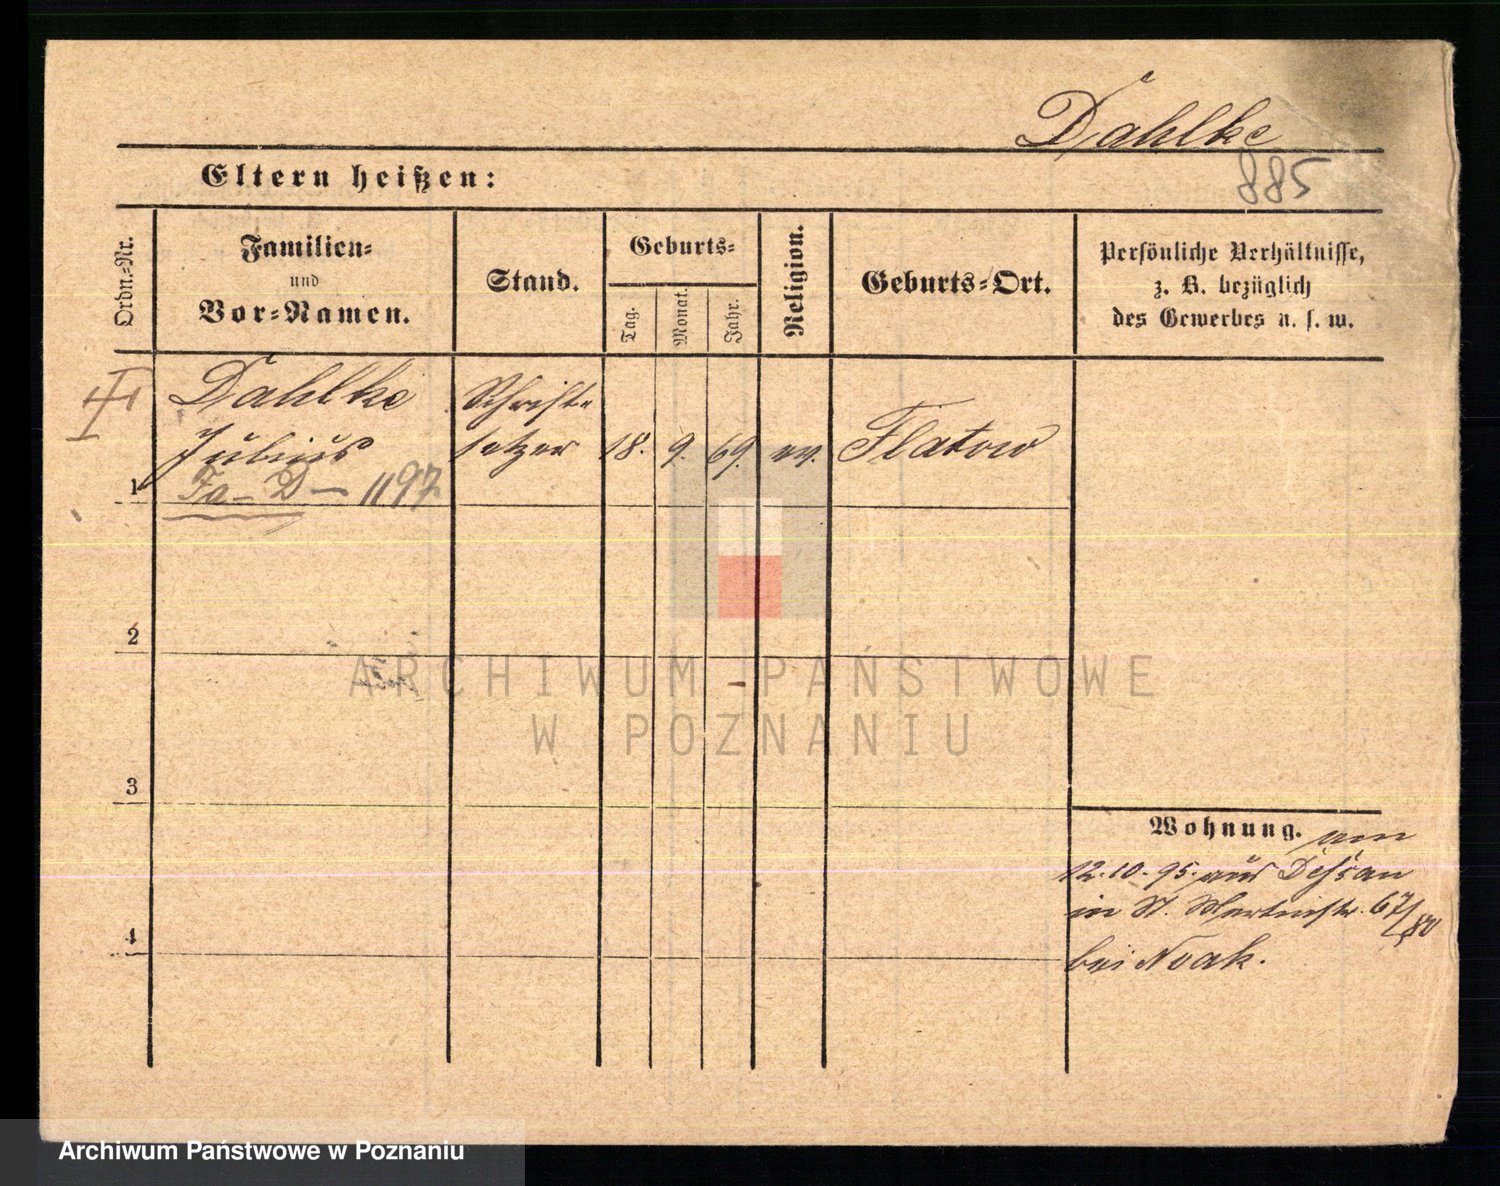 Dahlke
885
Eltern heißen:
Ordn.-Nr.
Familien-
und
Vor-Namen.
Stand.
Geburts-
Tag.
Monat.
Jahr.
Religion.
Geburts-Ort.
Persönliche Verhältnisse,
z. B. bezüglich
des Gewerbes u. s. w.
Dahlke
Julius
Schrift-
setzer
18. 9. 69. ev. Flatow
1
Fa - D - 1197
2
3
4
Wohnung. am
12.10.95. aus Dessau
in St. Martinstr. 67/
bei Noak.
ARCHIWUM PAŃSTWOWE
W POZNANIU
Archiwum Państwowe w Poznaniu